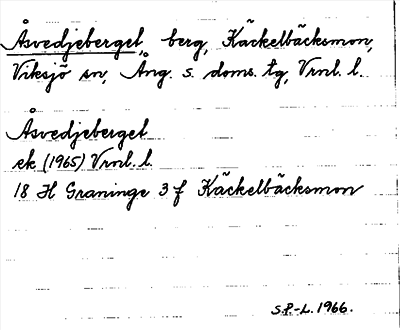 Åsvedjeberget, berg, Käckelbäcksmon,
Viksjö sn, Ång. s. doms. tg, Vrnl. l.
Åsvedjeberget
ek (1965) Vrnl. l.
18 H Graninge 3 f Käckelbäcksmon
S.P.-L. 1966.